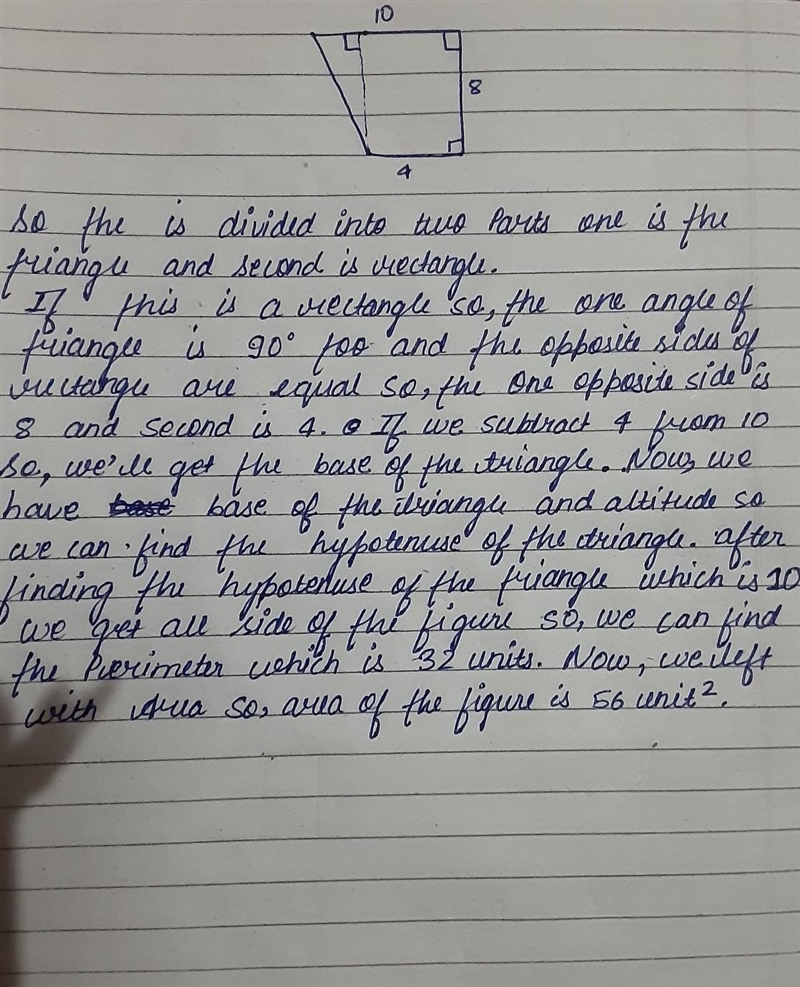 10
8
4
So the is divided into two Parts one is the
triangle and second is rectangle.
If this is a rectangle so, the one angle of
triangle is 90° too and the opposite sides of
rectangle are equal so, the one opposite side is
8 and second is 4. If we subtract 4 from 10
So, we'll get the base of the triangle. Now, we
have base base of the triangle and altitude so
we can find the hypotenuse of the triangle. after
finding the hypotenuse of the triangle which is 10
we get all side of the figure so, we can find
the Perimeter which is 32 units. Now, we left
with Area so, area of the figure is 56 unit².